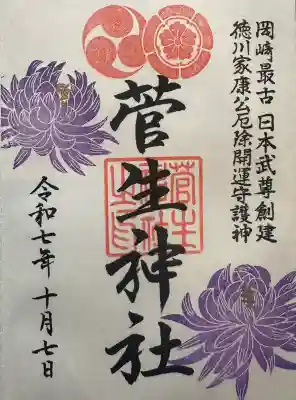 岡崎最古 日本武尊創建
徳川家康公厄除開運守護神
菅生神社
令和七年 十月七日